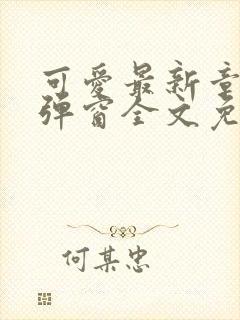 可愛最新章
彈窗全文免
何某忠